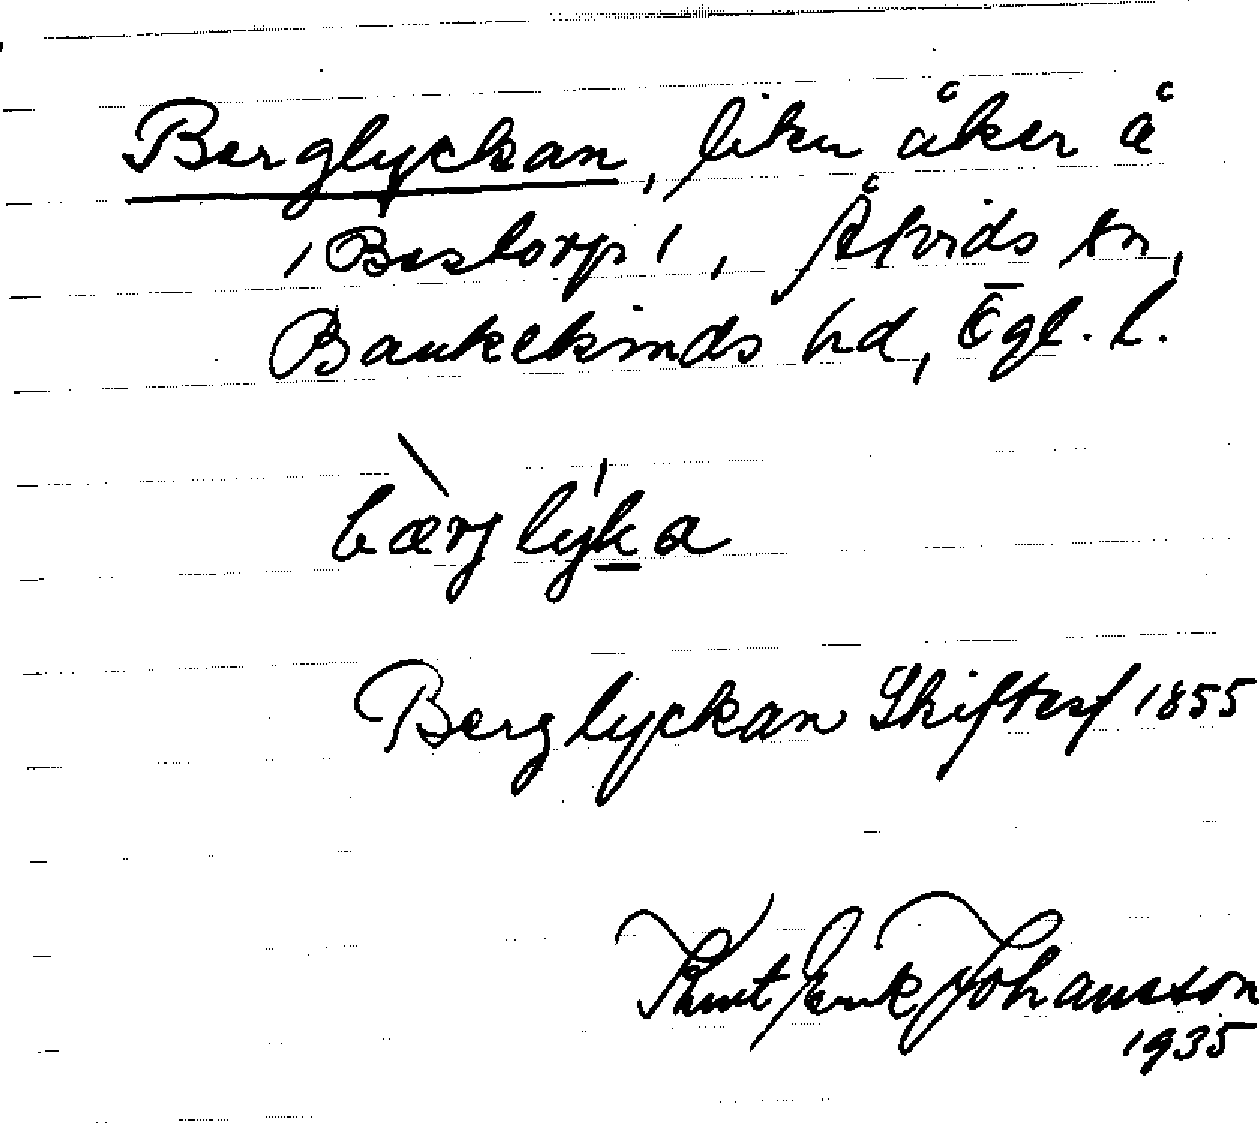 Berglyckan, liten åker å
'Bestorp', Åtvids sn,
Bankekinds hd, Ögl. l.
bærjlyka
Berglyckan Skiftesf 1855
Knut Erik Johansson
1935